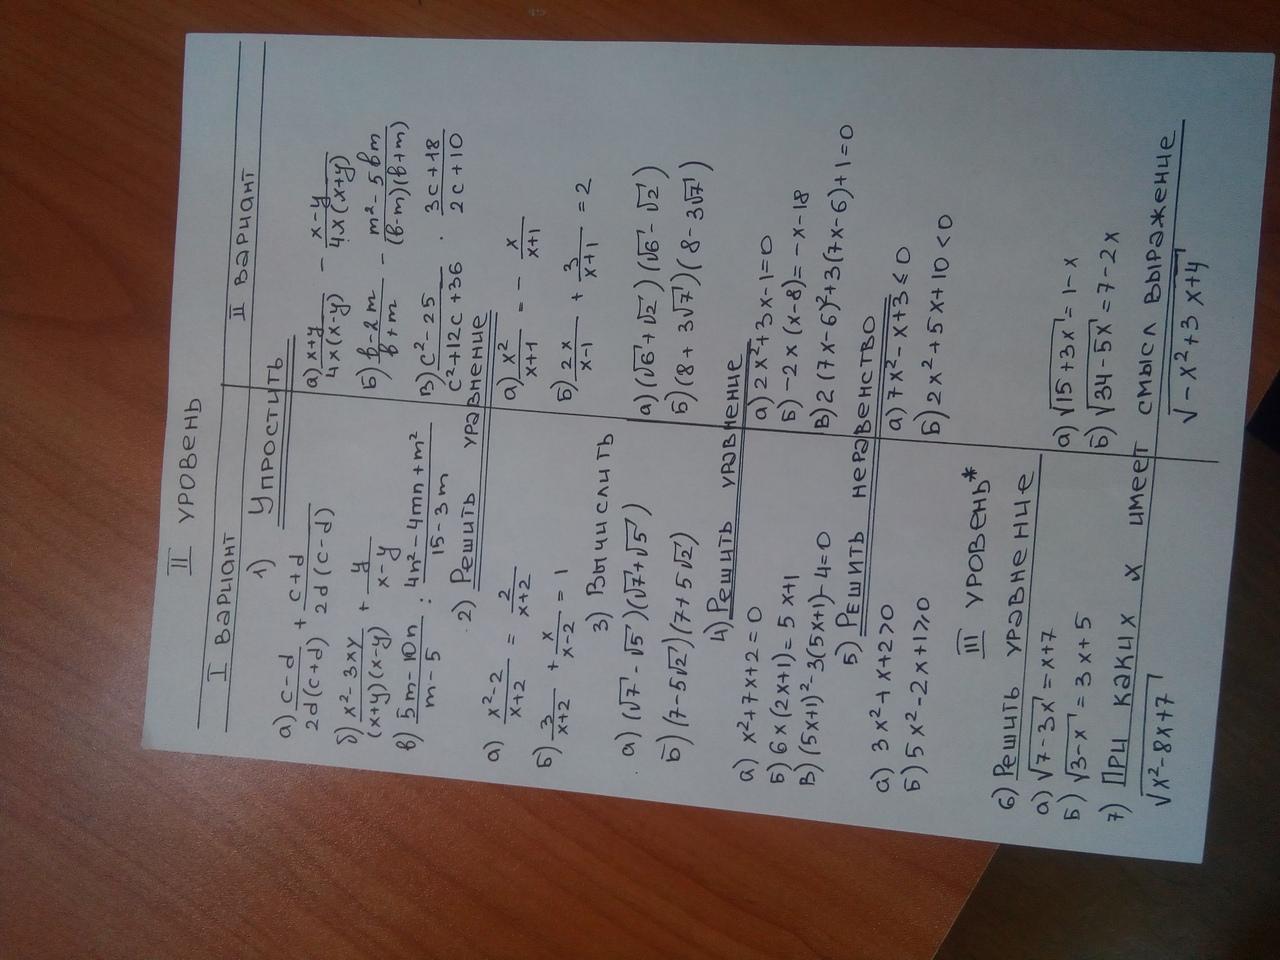 II уровень
I вариант II вариант
1) Упростить
а) (c-d)/(2d(c+d)) + (c+d)/(2d(c-d))
б) (x²-3xy)/((x+y)(x-y)) + y/(x-y)
в) (5m-10n)/(m-5) : (4n²-4mn+m²)/(15-3m)
а) (x+y)/(4x(x-y)) - (x-y)/(4x(x+y))
Б) (b-2m)/(b+m) - (m²-5bm)/((b-m)(b+m))
в) (c²-25)/(c²+12c+36) · (3c+18)/(2c+10)
2) Решить уравнение
а) (x²-2)/(x+2) = 2/(x+2)
Б) 3/(x+2) + x/(x-2) = 1
а) x²/(x+1) = - x/(x+1)
Б) 2x/(x-1) + 3/(x+1) = 2
3) Вычислить
а) (√7-√5)(√7+√5)
Б) (7-5√2)(7+5√2)
а) (√6+√2)(√6-√2)
Б) (8+3√7)(8-3√7)
4) Решить уравнение
а) x²+7x+2=0
Б) 6x(2x+1)=5x+1
В) (5x+1)²-3(5x+1)-4=0
а) 2x²+3x-1=0
Б) -2x(x-8)=-x-18
В) 2(7x-6)²+3(7x-6)+1=0
5) Решить неравенство
а) 3x²+x+2>0
Б) 5x²-2x+1≥0
а) 7x²-x+3≤0
Б) 2x²+5x+10<0
III уровень*
6) Решить уравнение
а) √(7-3x)=x+7
Б) √(3-x)=3x+5
а) √(15+3x)=1-x
Б) √(34-5x)=7-2x
7) При каких x имеет смысл выражение
√(x²-8x+7) √(-x²+3x+4)